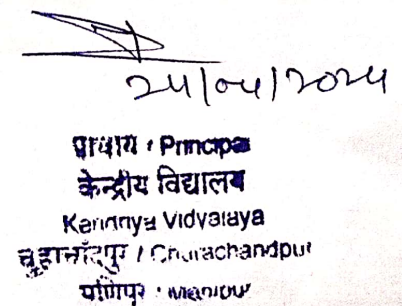 24/04/2024
प्राचार्य / Principal
केन्द्रीय विद्यालय
Kendriya Vidyalaya
चुड़ाचाँदपुर / Churachandpur
मणिपुर / Manipur